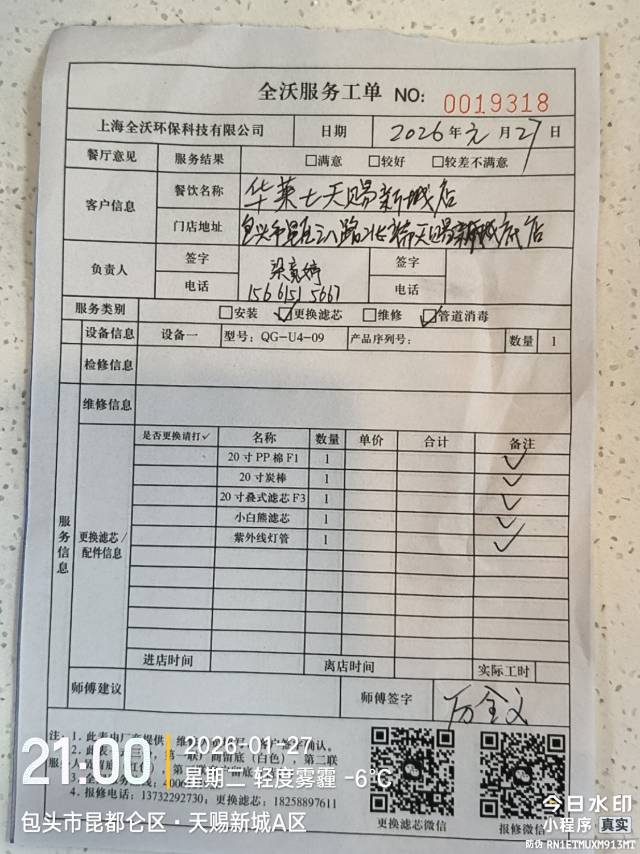 全沃服务工单 NO: 0019318
上海全沃环保科技有限公司 日期 2026年元月27日
餐厅意见 服务结果 □满意 □较好 □较差不满意
客户信息 餐饮名称 华莱士天赐新城店
门店地址 天赐新城底店
负责人 签字 签字
电话 15661515667 电话
服务类别 □安装 ☑更换滤芯 □维修 ☑管道消毒
设备信息 设备一 型号: QG-U4-09 产品序列号: 数量 1
检修信息
维修信息
服务信息 更换滤芯/配件信息
是否更换请打✓ 名称 数量 单价 合计 备注
20寸PP棉F1 1 ✓
20寸炭棒 1 ✓
20寸叠式滤芯F3 1 ✓
小白熊滤芯 1 ✓
紫外线灯管 1 ✓
进店时间 离店时间 实际工时
师傅建议 师傅签字
注: 1.此表由厂商提供
4.报修电话: 13732292730; 更换滤芯: 18258897611
更换滤芯微信 报修微信
21:00 2026-01-27
星期二 轻度雾霾 -6℃
包头市昆都仑区·天赐新城A区
今日水印
小程序 真实
防伪 RN1ETMUXM913MT